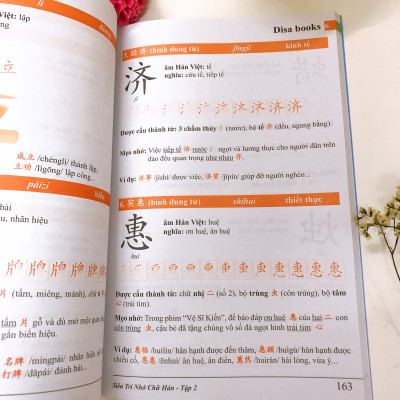 Việt: lập
立
成立 /chénglì/ thành lập.
立功 /lìgōng/ lập công...
páizi
bài
u, nhãn hiệu
片 (tấm, miếng, mảnh), chữ
tấm 片 gỗ và dù mở một quán
gắn biển hiệu.
名牌 /míngpái/ nhãn hiệu nổi
打牌 /dǎpái/ đánh bài...
Disa books
5. 经济 (hình dung từ) jīngjì kinh tế
济
jì
âm Hán Việt: tế
nghĩa: cứu tế, tiếp tế
Được cấu thành từ: 3 chấm thủy 氵 (nước), bộ tề 齐 (đều, ngang bằng).
Mẹo nhớ: Việc tiếp tế 济 nước 氵 ngọt và lương thực cho người dân trên
đảo đều quan trọng như nhau 齐.
Ví dụ: 济事 /jìshì/ được việc, 济贫 /jìpín/ giúp đỡ người nghèo...
6. 实惠 (hình dung từ) shíhuì thiết thực
惠
huì
âm Hán Việt: huệ
nghĩa: ơn huệ, ân huệ
Được cấu thành từ: chữ nhị 二 (số 2), bộ trùng 虫 (côn trùng), bộ tâm
心 (trái tim).
Mẹo nhớ: Trong phim "Vệ Sĩ Kiến", để báo đáp ơn huệ 惠 của hai 二 con
côn trùng 虫, cậu bé đã tặng chúng vô số đá ngọt hình trái tim 心
Ví dụ: 惠临 /huìlín/ hân hạnh được đến thăm, 惠顾 /huìgù/ hân hạnh được
chiếu cố, 恩惠 /ēnhuì/ ân huệ, ân điển, 蕙然 /huìrán/ hài lòng, vừa ý,...
Siêu Trí Nhớ Chữ Hán - Tập 2
163